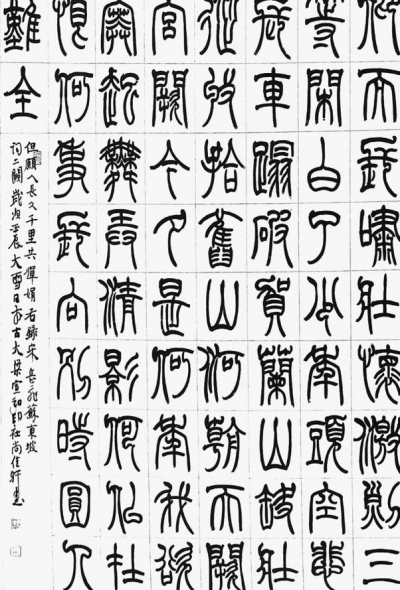 仰天長嘯壯懷激烈三
等閒白了少年頭空悲
長車踏破賀蘭山缺壯
從收拾舊山河朝天闕
宮闕今夕是何年我欲
寒起舞弄清影何似在
恨何事長向別時圓人
難全
但願人長久千里共嬋娟右錄宋岳飛蘇東坡
詞二闋歲次壬辰大雪日於古大梁宣和印社尚佳軒書